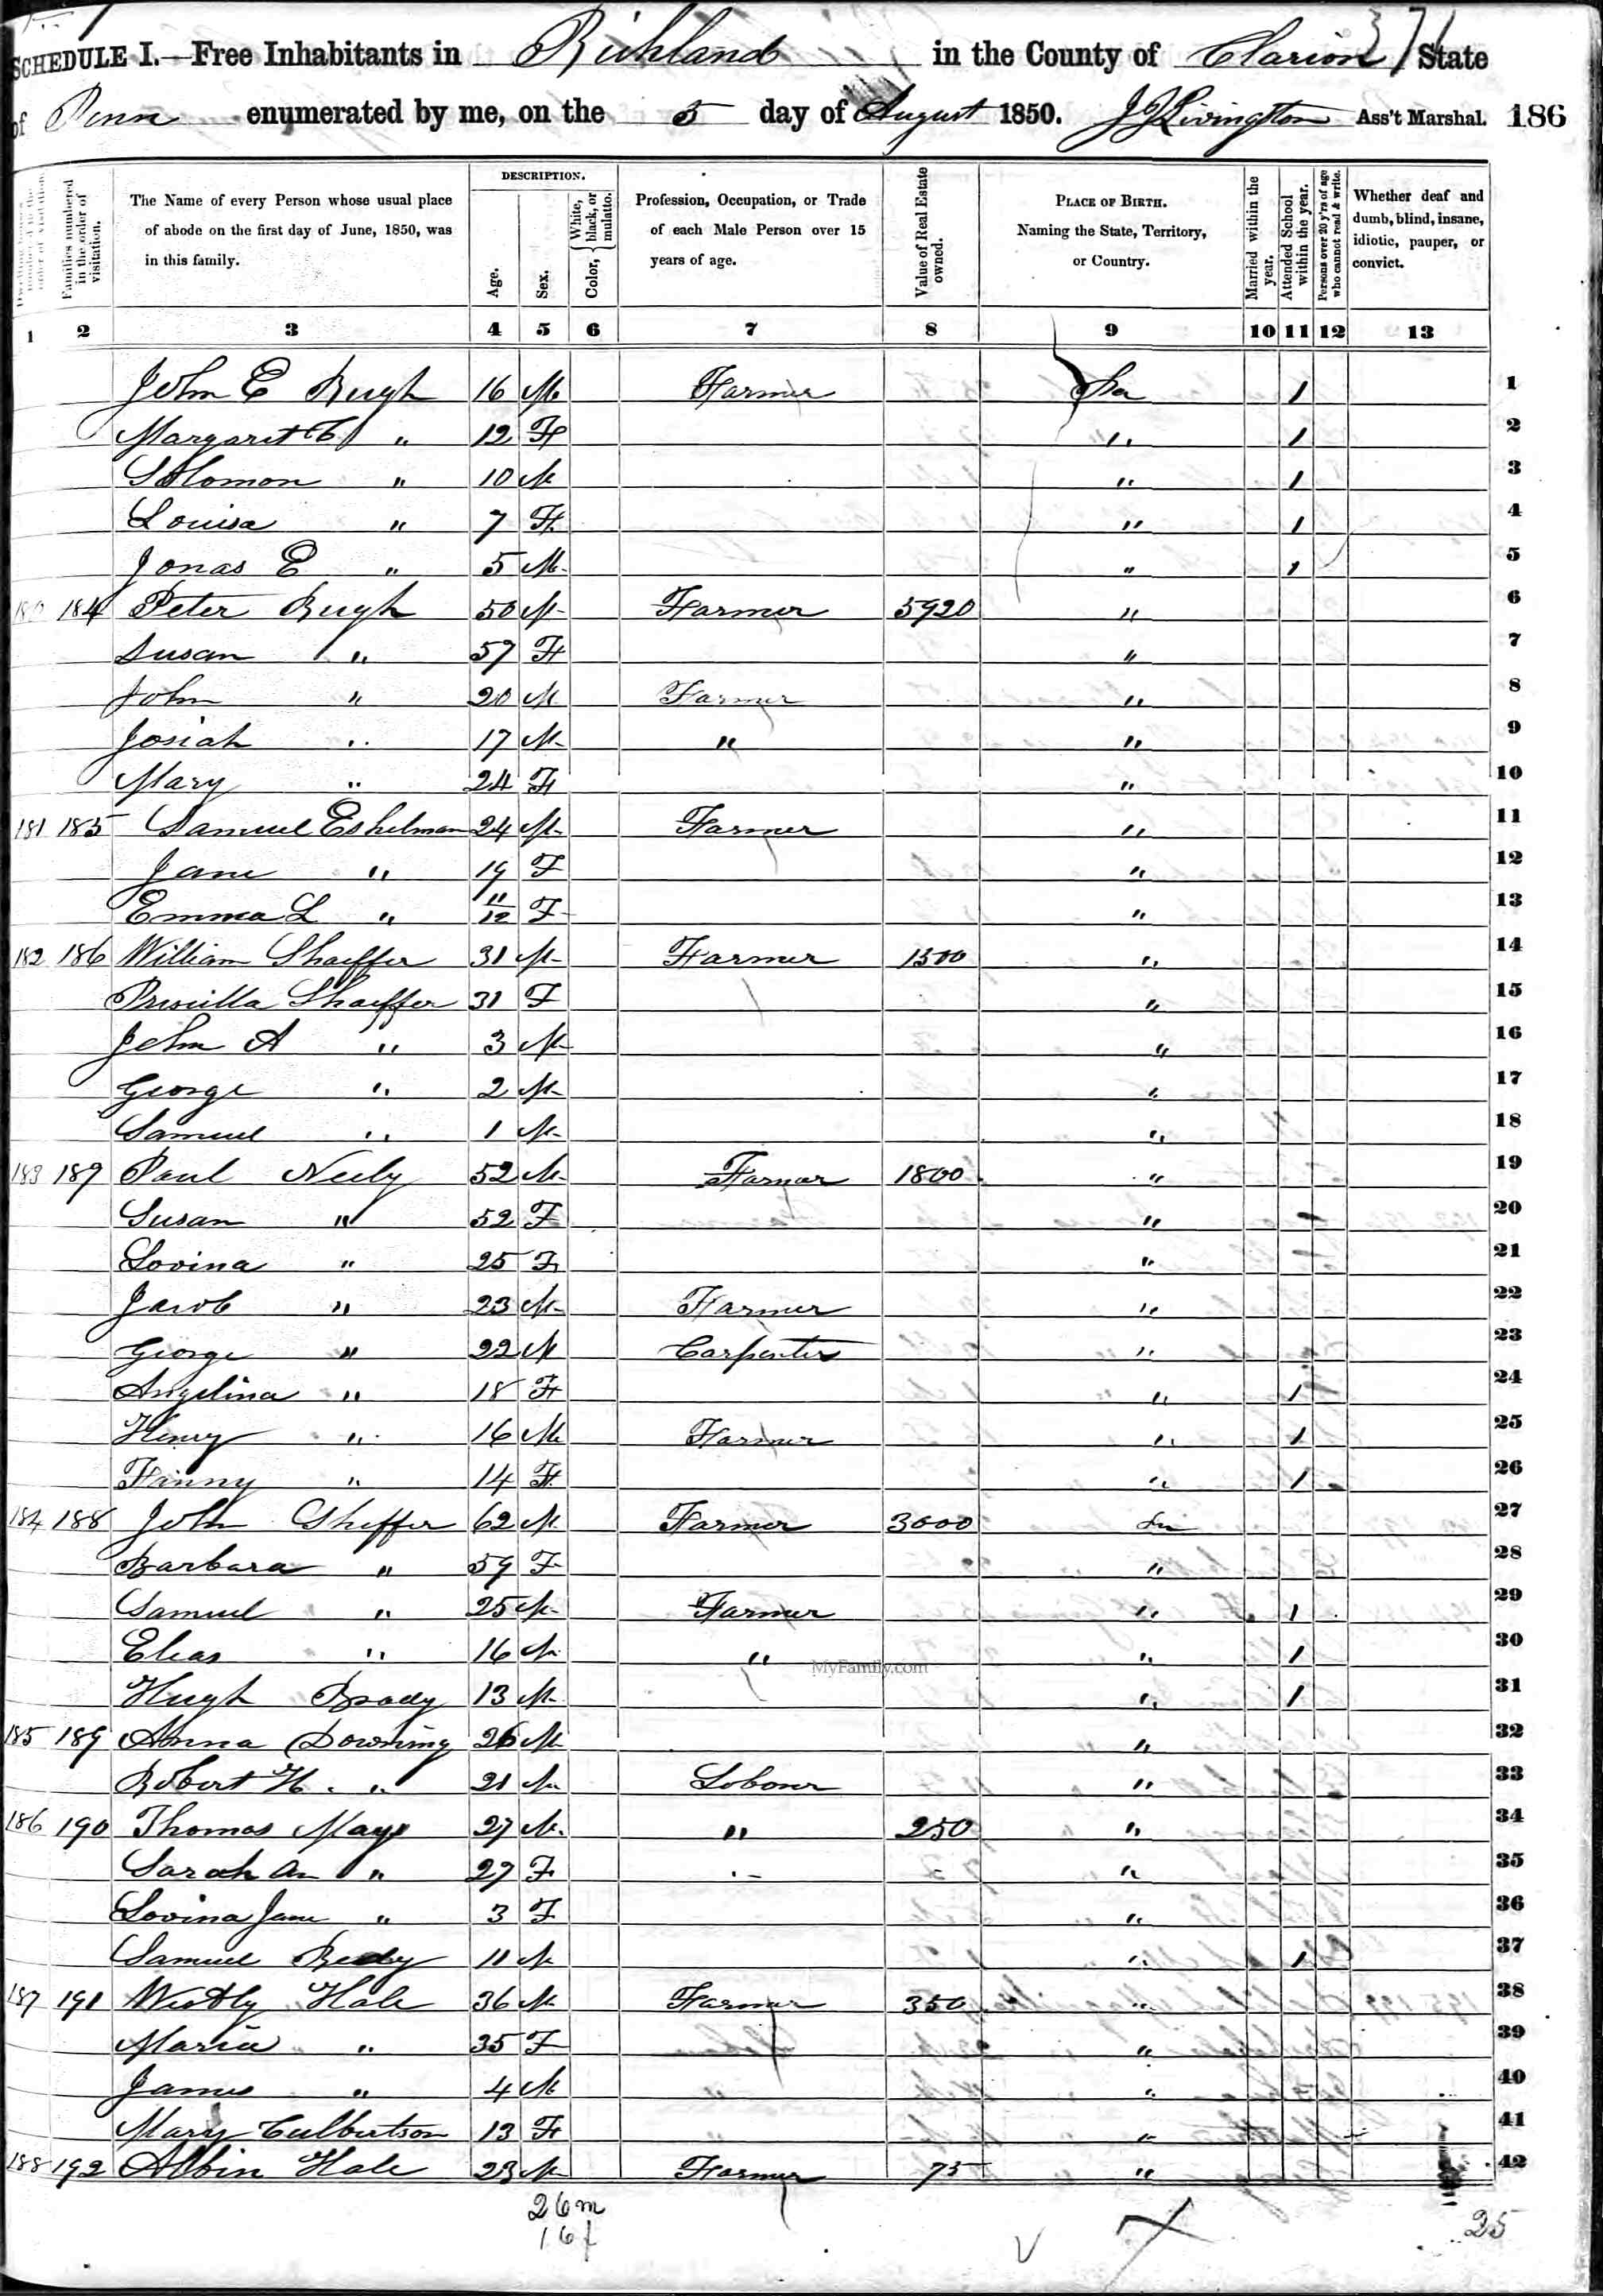 371
SCHEDULE I.—Free Inhabitants in Richland in the County of Clarion State
of Penn enumerated by me, on the 5 day of August 1850. J J Livington Ass't Marshal. 186
DESCRIPTION.
Families numbered in the order of visitation.
The Name of every Person whose usual place of abode on the first day of June, 1850, was in this family.
Age.
Sex.
Color, { White, black, or mulatto.
Profession, Occupation, or Trade of each Male Person over 15 years of age.
Value of Real Estate owned.
PLACE OF BIRTH. Naming the State, Territory, or Country.
Married within the year.
Attended School within the year.
Persons over 20 y'rs of age who cannot read & write.
Whether deaf and dumb, blind, insane, idiotic, pauper, or convict.
1 2 3 4 5 6 7 8 9 10 11 12 13
John E Rugh 16 M Farmer Pa 1 1
Margaret C " 12 F " 1 2
Solomon " 10 M " 1 3
Louisa " 7 F " 1 4
Jonas E " 5 M " 1 5
180 184 Peter Rugh 50 M Farmer 5920 " 6
Susan " 57 F " 7
John " 20 M Farmer " 8
Josiah " 17 M " " 9
Mary " 24 F " 10
181 185 Samuel Eshelman 24 M Farmer " 11
Jane " 19 F " 12
Emma L " 11/12 F " 13
182 186 William Shaeffer 31 M Farmer 1500 " 14
Priscilla Shaeffer 31 F " 15
John A " 3 M " 16
George " 2 M " 17
Samuel " 1 M " 18
183 187 Paul Neely 52 M Farmer 1800 " 19
Susan " 52 F " 20
Lovina " 25 F " 21
Jacob " 23 M Farmer " 22
George " 22 M Carpenter " 23
Angelina " 18 F " 1 24
Henry " 16 M Farmer " 1 25
Fanny " 14 F " 1 26
184 188 John Sheffer 62 M Farmer 3000 27
Barbara " 59 F " 28
Samuel " 25 M Farmer " 1 29
Elias " 16 M " " 1 30
MyFamily.com
Hugh Brady 13 M " 1 31
185 189 Anna Downing 26 M " 32
Robert H. " 21 M Lobour " 33
186 190 Thomas Mays 27 M " 250 " 34
Sarah An " 27 F " 35
Lovina Jane " 3 F " 36
Samuel 11 M " 1 37
187 191 Westly Hale 36 M Farmer 350 " 38
Maria " 35 F " 39
James " 4 M " 40
Mary Culbertson 13 F " 41
188 192 Albin Hale 23 M Farmer 75 " 42
26 m
16 f
25